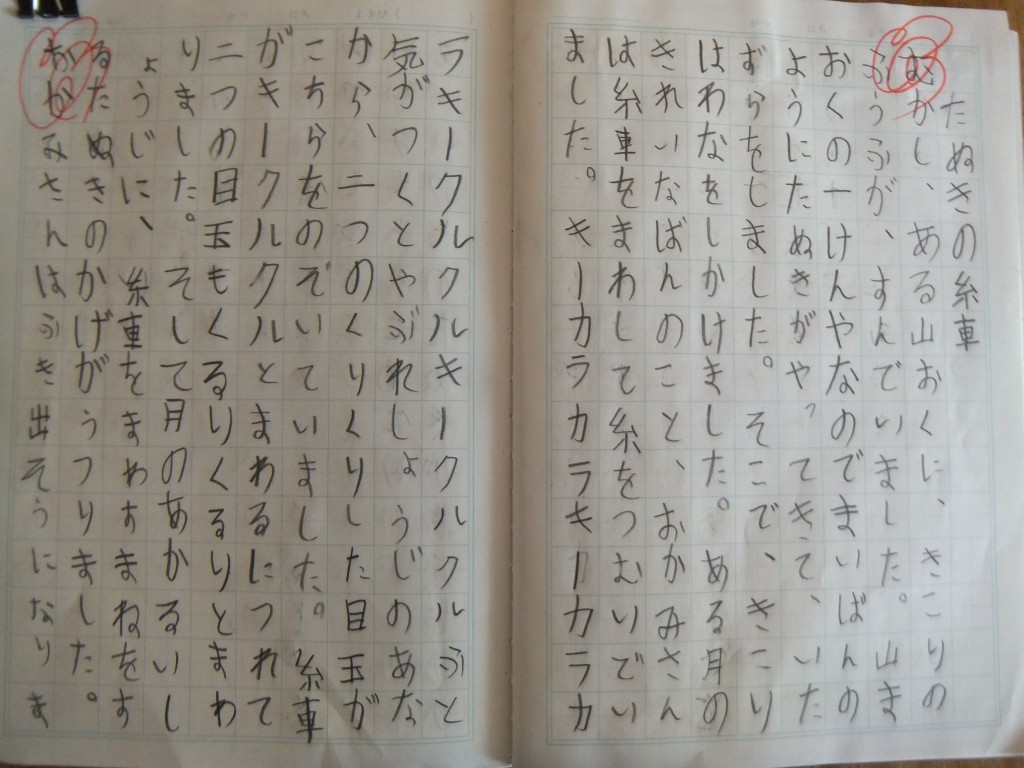 たぬきの糸車
むかし、ある山おくに、きこりの
ふうふが、すんでいました。山ま
おくの一けんやなのでまいばんの
ようにたぬきがやってきて、いた
ずらをしました。そこで、きこり
はわなをしかけました。ある月の
きれいなばんのこと、おかみさん
は糸車をまわして糸をつむいでい
ました。キーカラカラキーカラカ
ラキークルクルキークルクルふと
気がつくとやぶれしょうじのあな
から、二つのくりくりした目玉が
こちらをのぞいていました。糸車
がキークルクルとまわるにつれて
二つの目玉もくるりくるりとまわ
りました。そして月のあかるいし
ょうじに、糸車をまわすまねをす
るたぬきのかげがうつりました。
おかみさんはふき出そうになりま